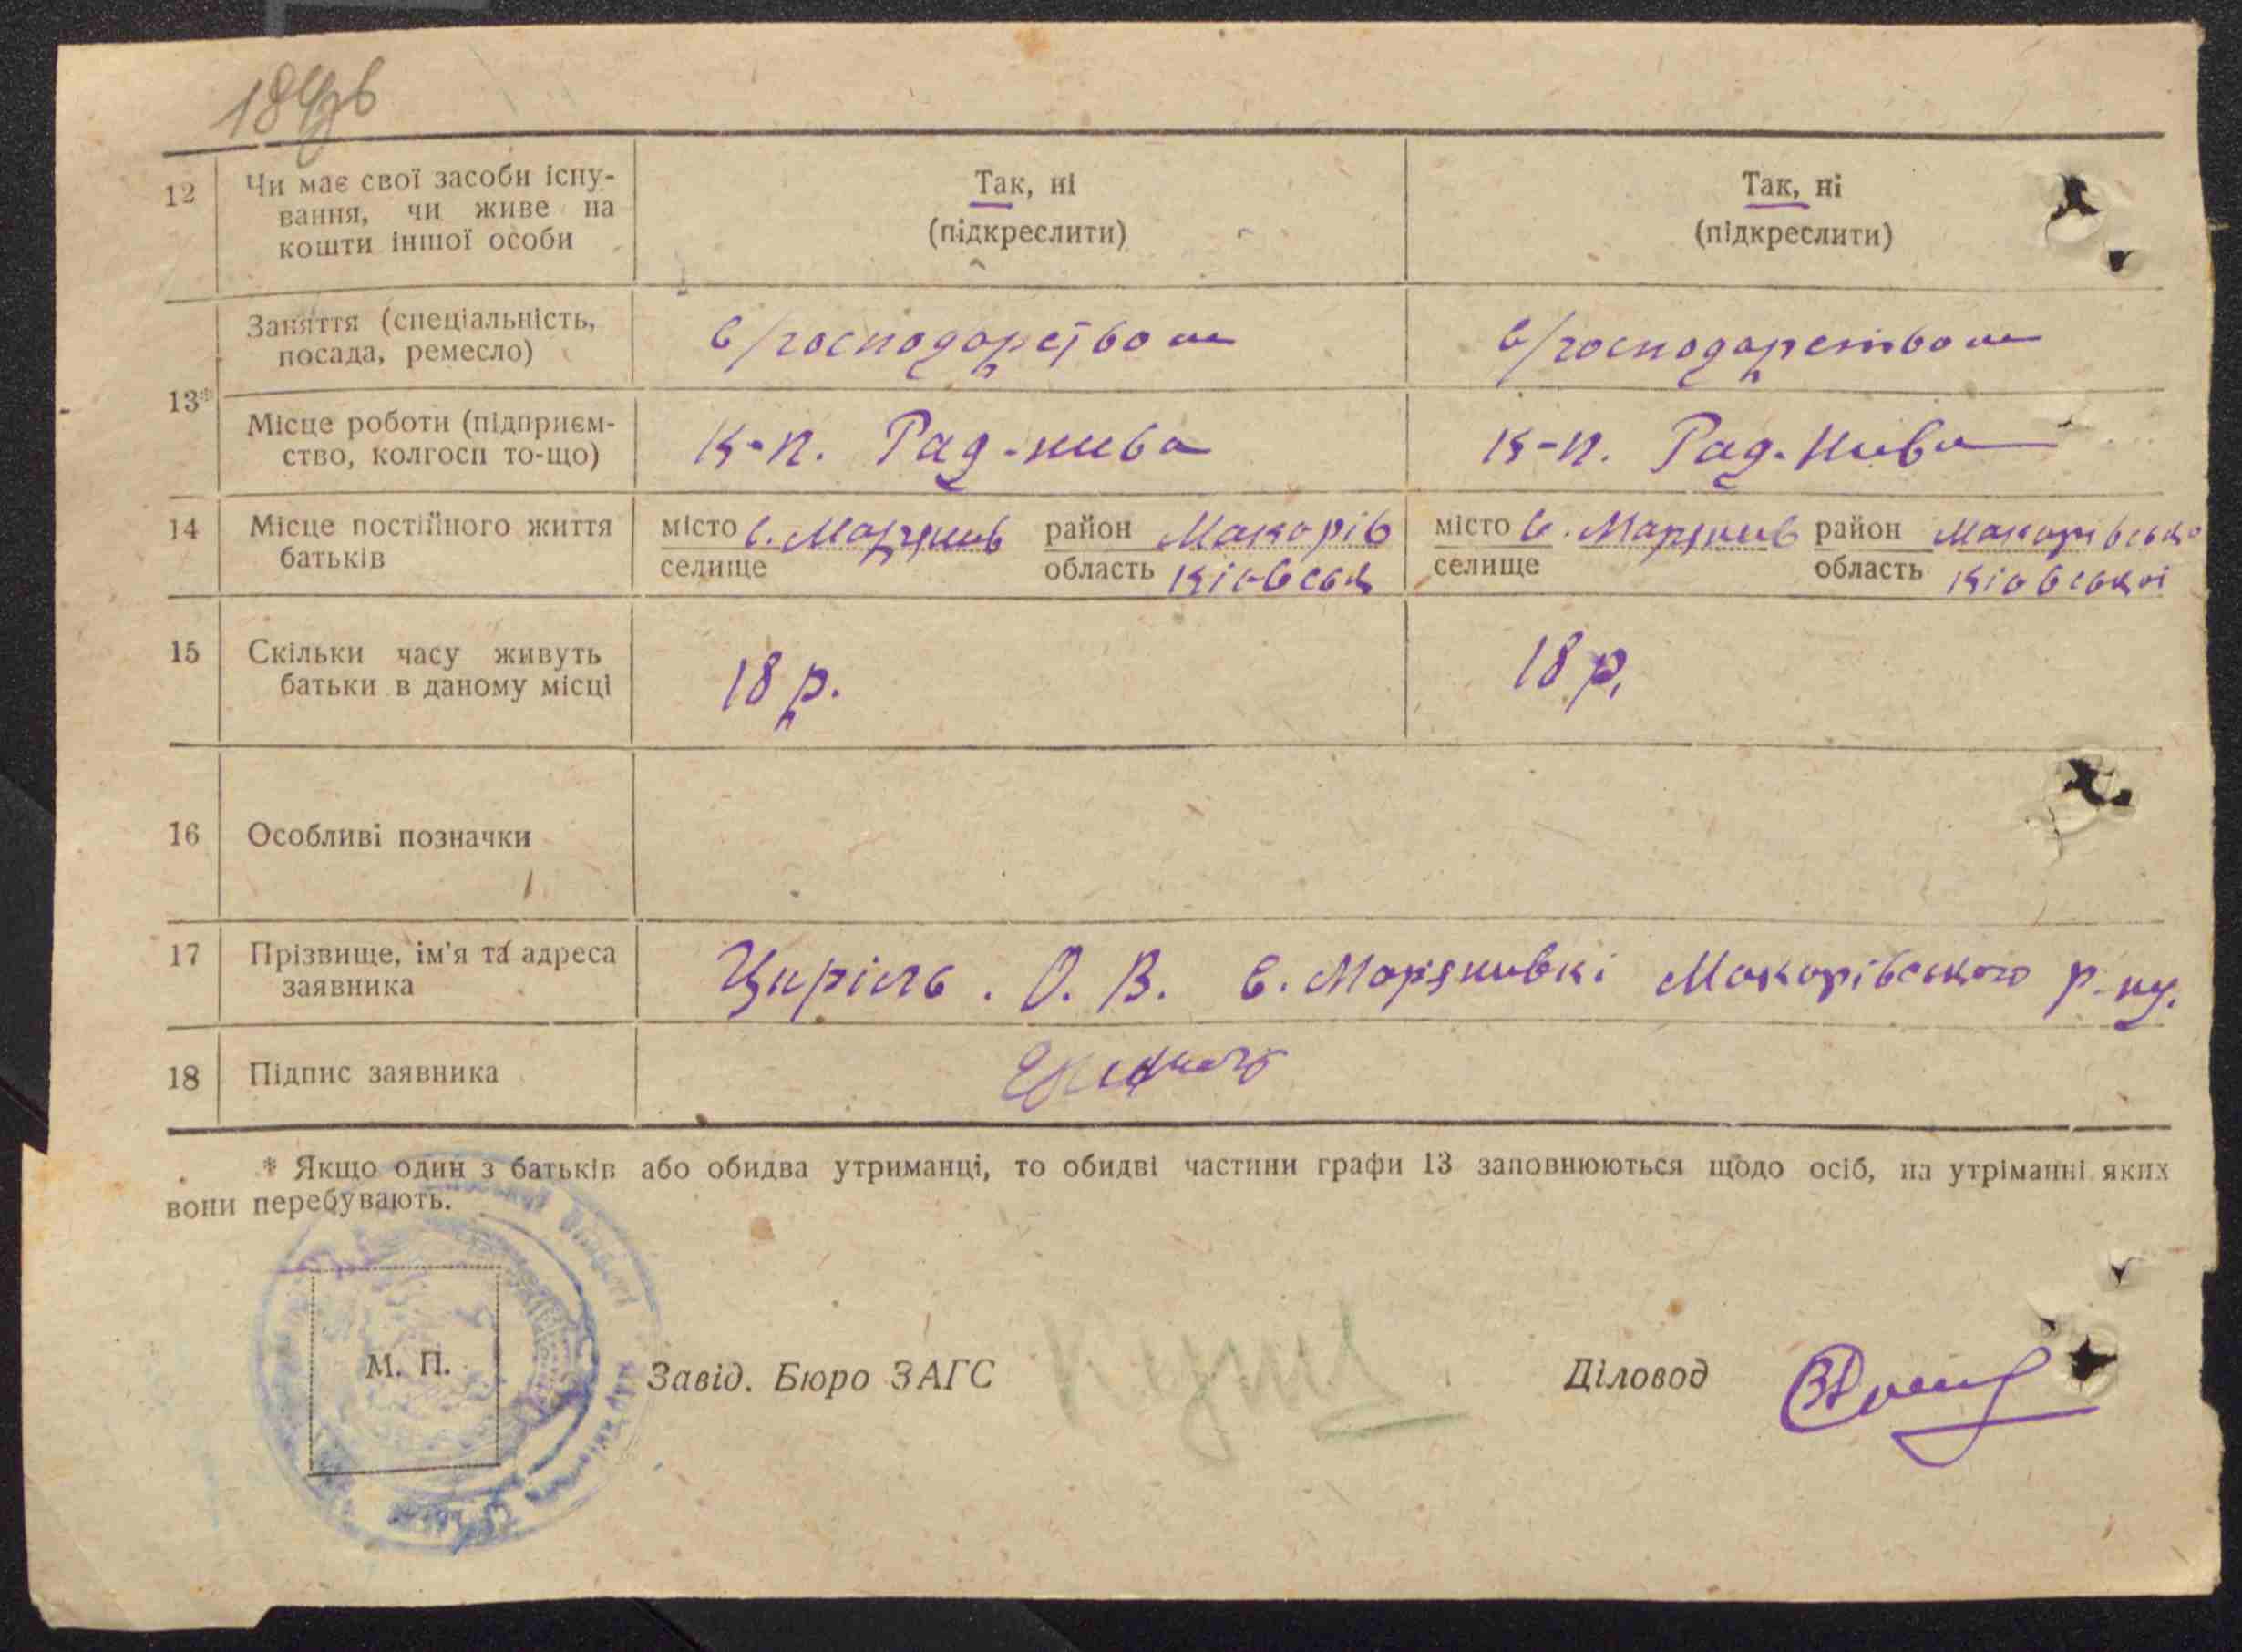 12 Чи має свої засоби існу-
вання, чи живе на
кошти іншої особи
Так, ні
(підкреслити)
Так, ні
(підкреслити)
13*
Заняття (спеціальність,
посада, ремесло)
в/господарством
в/господарством
Місце роботи (підприєм-
ство, колгосп то-що)
к-п. Рад-нива
к-п. Рад. Нива
14 Місце постійного життя
батьків
місто с. район Макорів
селище область
місто с. район
селище область
15 Скільки часу живуть
батьки в даному місці
18 р.
18 р.
16 Особливі позначки
17 Прізвище, ім'я та адреса
заявника
О. В. с. Макорівського р-ну.
18 Підпис заявника
* Якщо один з батьків або обидва утриманці, то обидві частини графи 13 заповнюються щодо осіб, на утріманні яких
вони перебувають.
М. П.
Завід. Бюро ЗАГС
Діловод